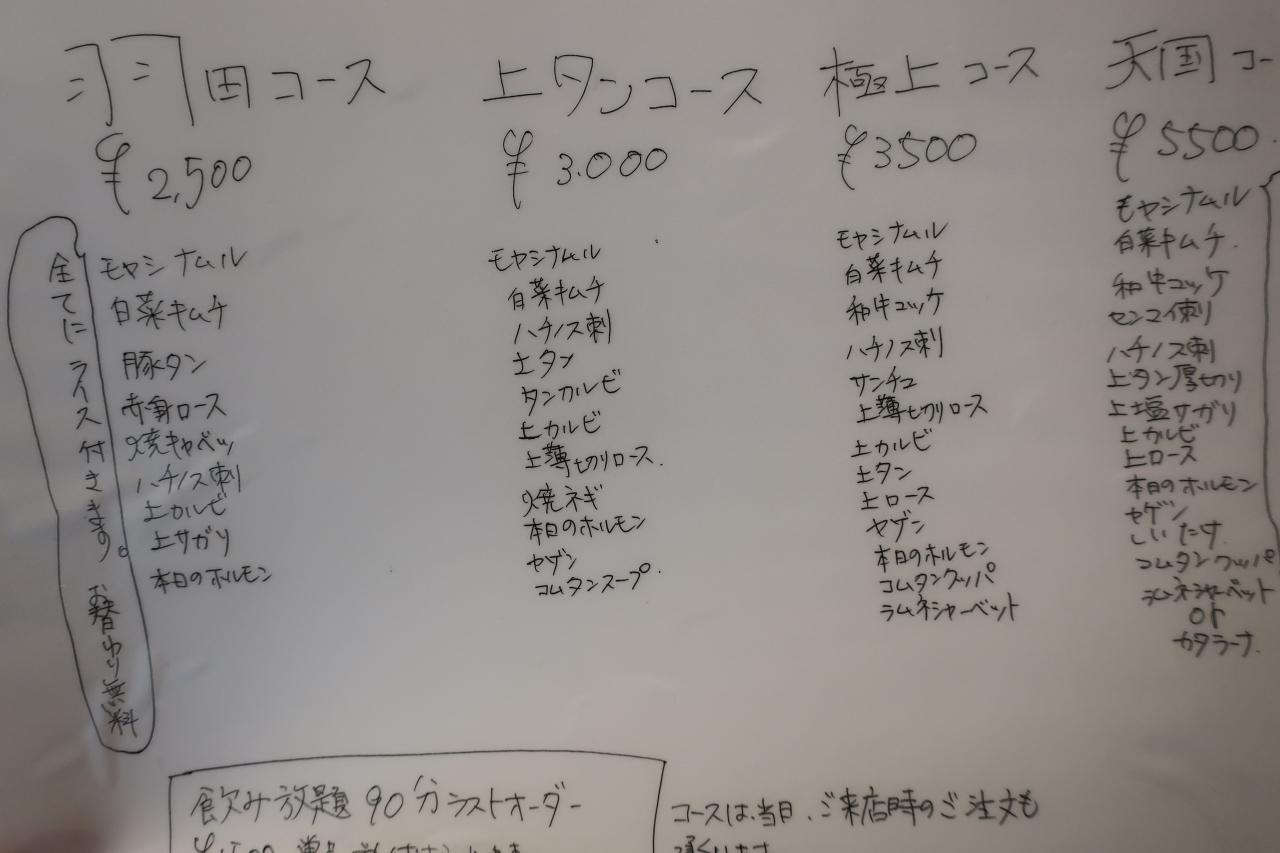 羽田コース
¥2,500
モヤシナムル
白菜キムチ
豚タン
赤身ロース
焼キャベツ
ハチノス刺
上カルビ
上サガリ
本日のホルモン
全てにライス付きます。お替わり無料
上タンコース
¥3.000
モヤシナムル
白菜キムチ
ハチノス刺
上タン
タンカルビ
上カルビ
上薄切りロース.
焼ネギ
本日のホルモン
ヤゲン
コムタンスープ.
極上コース
¥3500
モヤシナムル
白菜キムチ
和牛ユッケ
ハチノス刺
サンチュ
上薄切りロース
上カルビ
上タン
上ロース
ヤゲン
本日のホルモン
コムタンクッパ
ラムネシャーベット
天国コー
¥5500
モヤシナムル
白菜キムチ.
和牛ユッケ
センマイ刺
ハチノス刺
上タン厚切り
上塩サガリ
上カルビ
上ロース
本日のホルモン
ヤゲン
しいたけ.
コムタンクッパ
ラムネシャーベット
or
カタラーナ.
飲み放題90分ラストオーダー
コースは、当日、ご来店時のご注文も